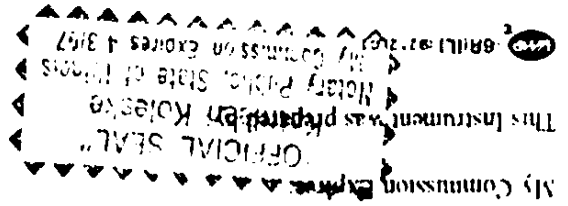 My Commission Expires:
"OFFICIAL SEAL"
This Instrument was prepared by:
Koleske
Notary Public, State of Illinois
My Commission Expires 4/3/97